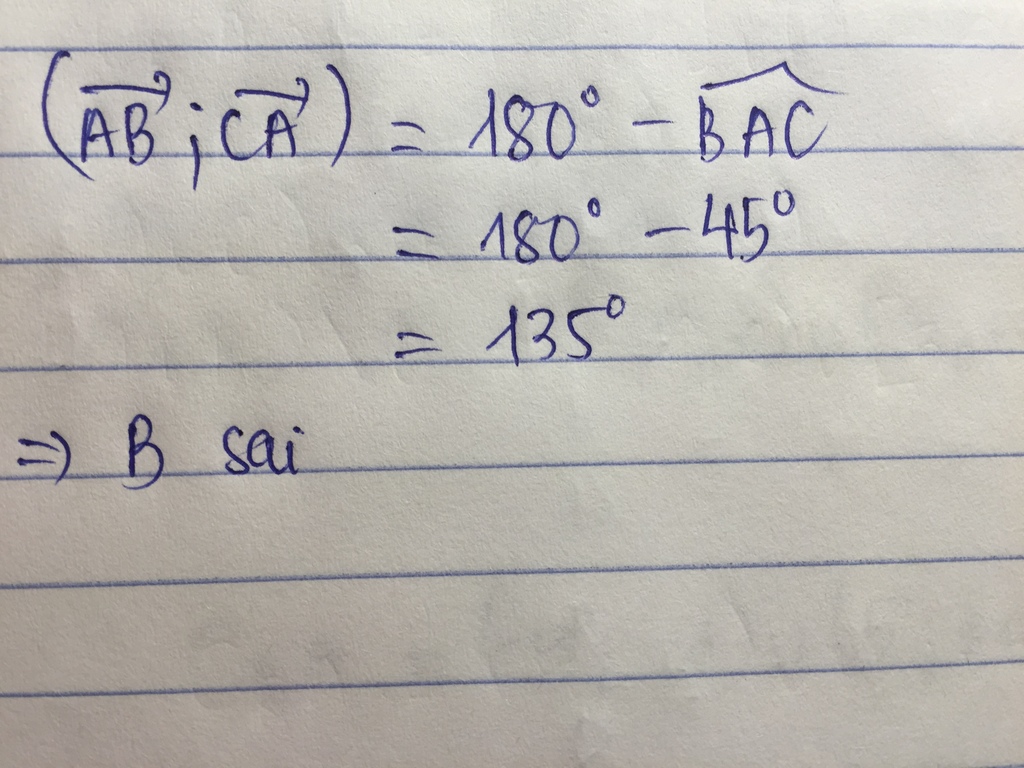 (\overrightarrow{AB} ; \overrightarrow{CA}) = 180° - \widehat{BAC}
= 180° - 45°
= 135°
=> B sai